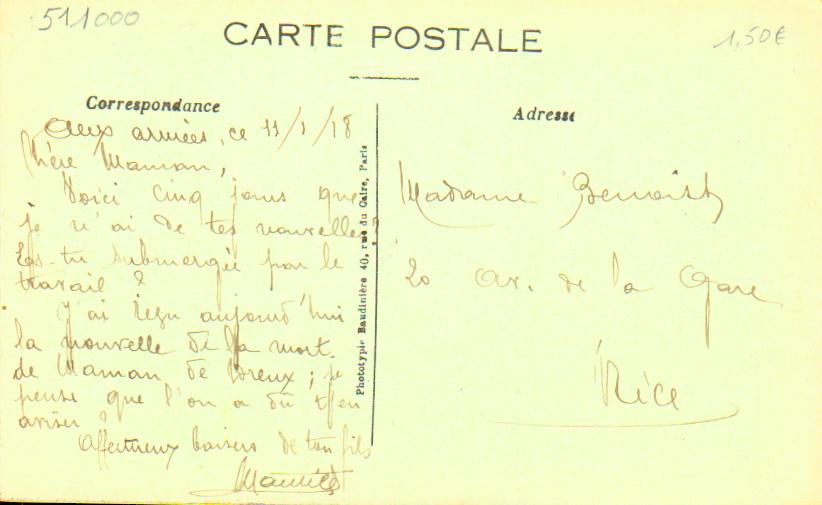 511000
1,50€
CARTE POSTALE
Correspondance
Aux armées, ce 11/1/18
Chère Maman,
Voici cinq jours que
je n'ai de tes nouvelles.
Es-tu submergée par le
travail ?
J'ai reçu aujourd'hui
la nouvelle de la mort
de Maman de Dreux ; je
pense que l'on a dû t'en
aviser ?
Affectueux baisers de ton fils
Maurice
Phototypie Baudinière 40, rue du Caire, Paris
Adresse
Madame Benoist
20 Av. de la Gare
Nice